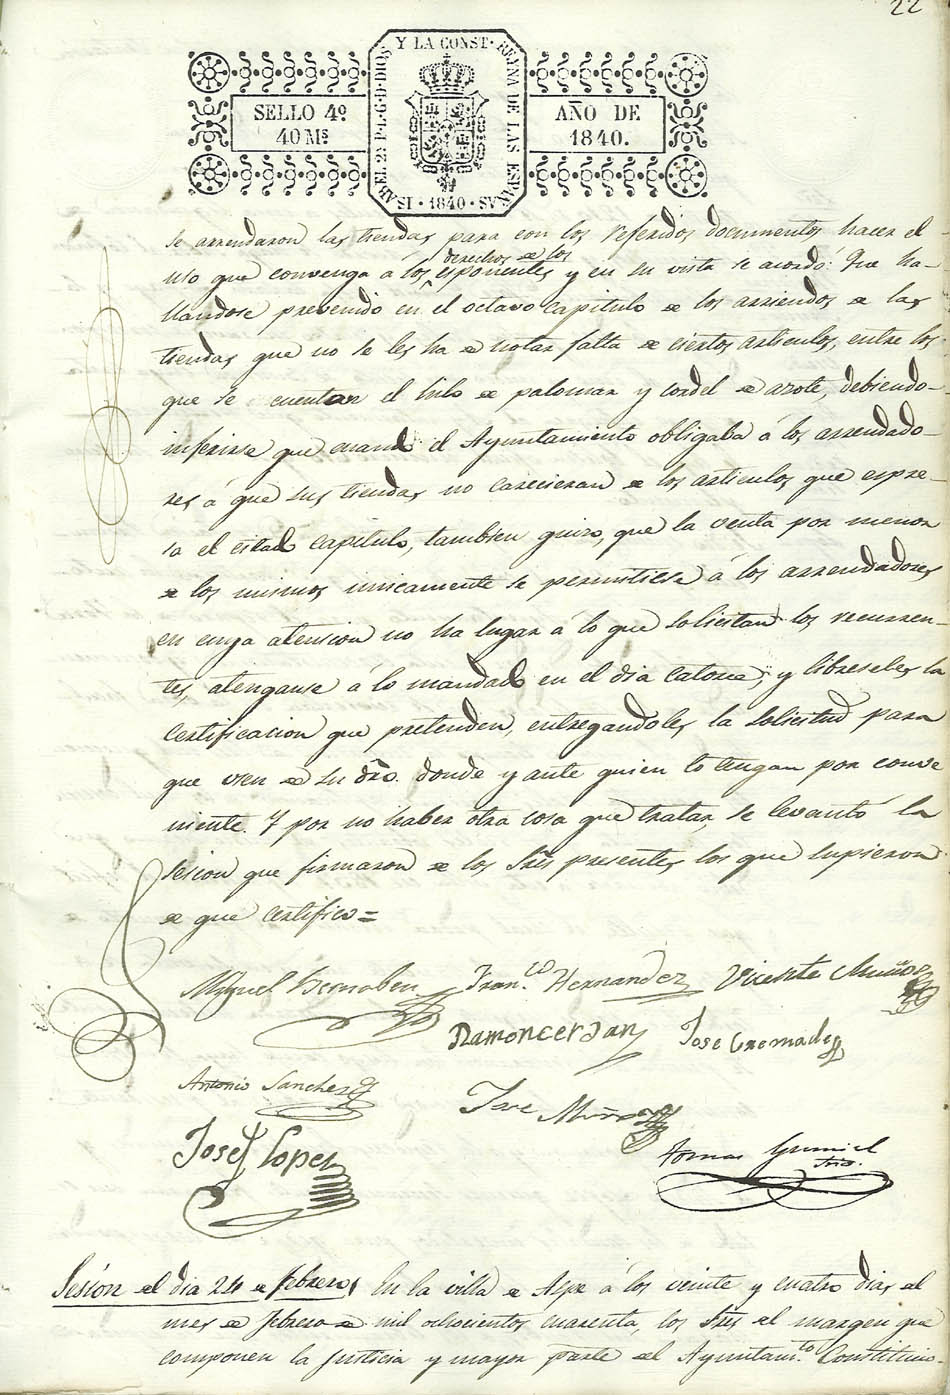 22
ISABEL 2ª P·L·G·D·DIOS Y LA CONST· REYNA DE LAS ESPAÑAS · 1840 ·
SELLO 4º
40 Mˢ
AÑO DE
1840.
se arrendaron las tiendas para con los referidos documentos hacer el
derechos de los
uso que convenga á los esponentes y en su vista se acordó: Que ha-
llandose prevenido en el octavo capitulo de los arriendos de las
tiendas que no se les ha de notar falta de ciertos articulos, entre los
que se cuentan el hilo de palomar y cordel de azote, debiendo
inferirse que cuando el Ayuntamiento obligaba á los arrendado-
res á que sus tiendas no carecieran de los articulos que espre-
sa el citado capitulo, tambien quiso, que la venta por menor
de los mismos unicamente se permitiese á los arrendadores
en cuya atension no ha lugar á lo que solicitan los recurren-
tes, atenganse á lo mandado en el dia catorce, y libreseles la
certificacion que pretenden, entregandoles la solicitud para
que usen de su dro. donde y ante quien lo tengan por conve
niente. Y por no haber otra cosa que tratar, se levantó la
sesion que firmaron de los Sres presentes los que supieron
de que certifico =
Miguel Bernabeu Franco Hernandez Vicente Muños
Ramon cerdan Jose Cremades
Antonio Sanchez
Jose Muñoz
Josef Lopez
Tomas Gumiel
Srio.
Sesion del dia 24 de febrero, En la villa de Aspe á los veinte y cuatro dias del
mes de febrero de mil ochocientos cuarenta, los Sres del margen que
componen la Justicia y mayor parte del Ayuntamto Constitucio-